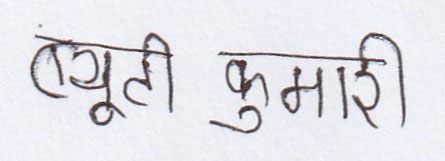 त्यूती कुमारी